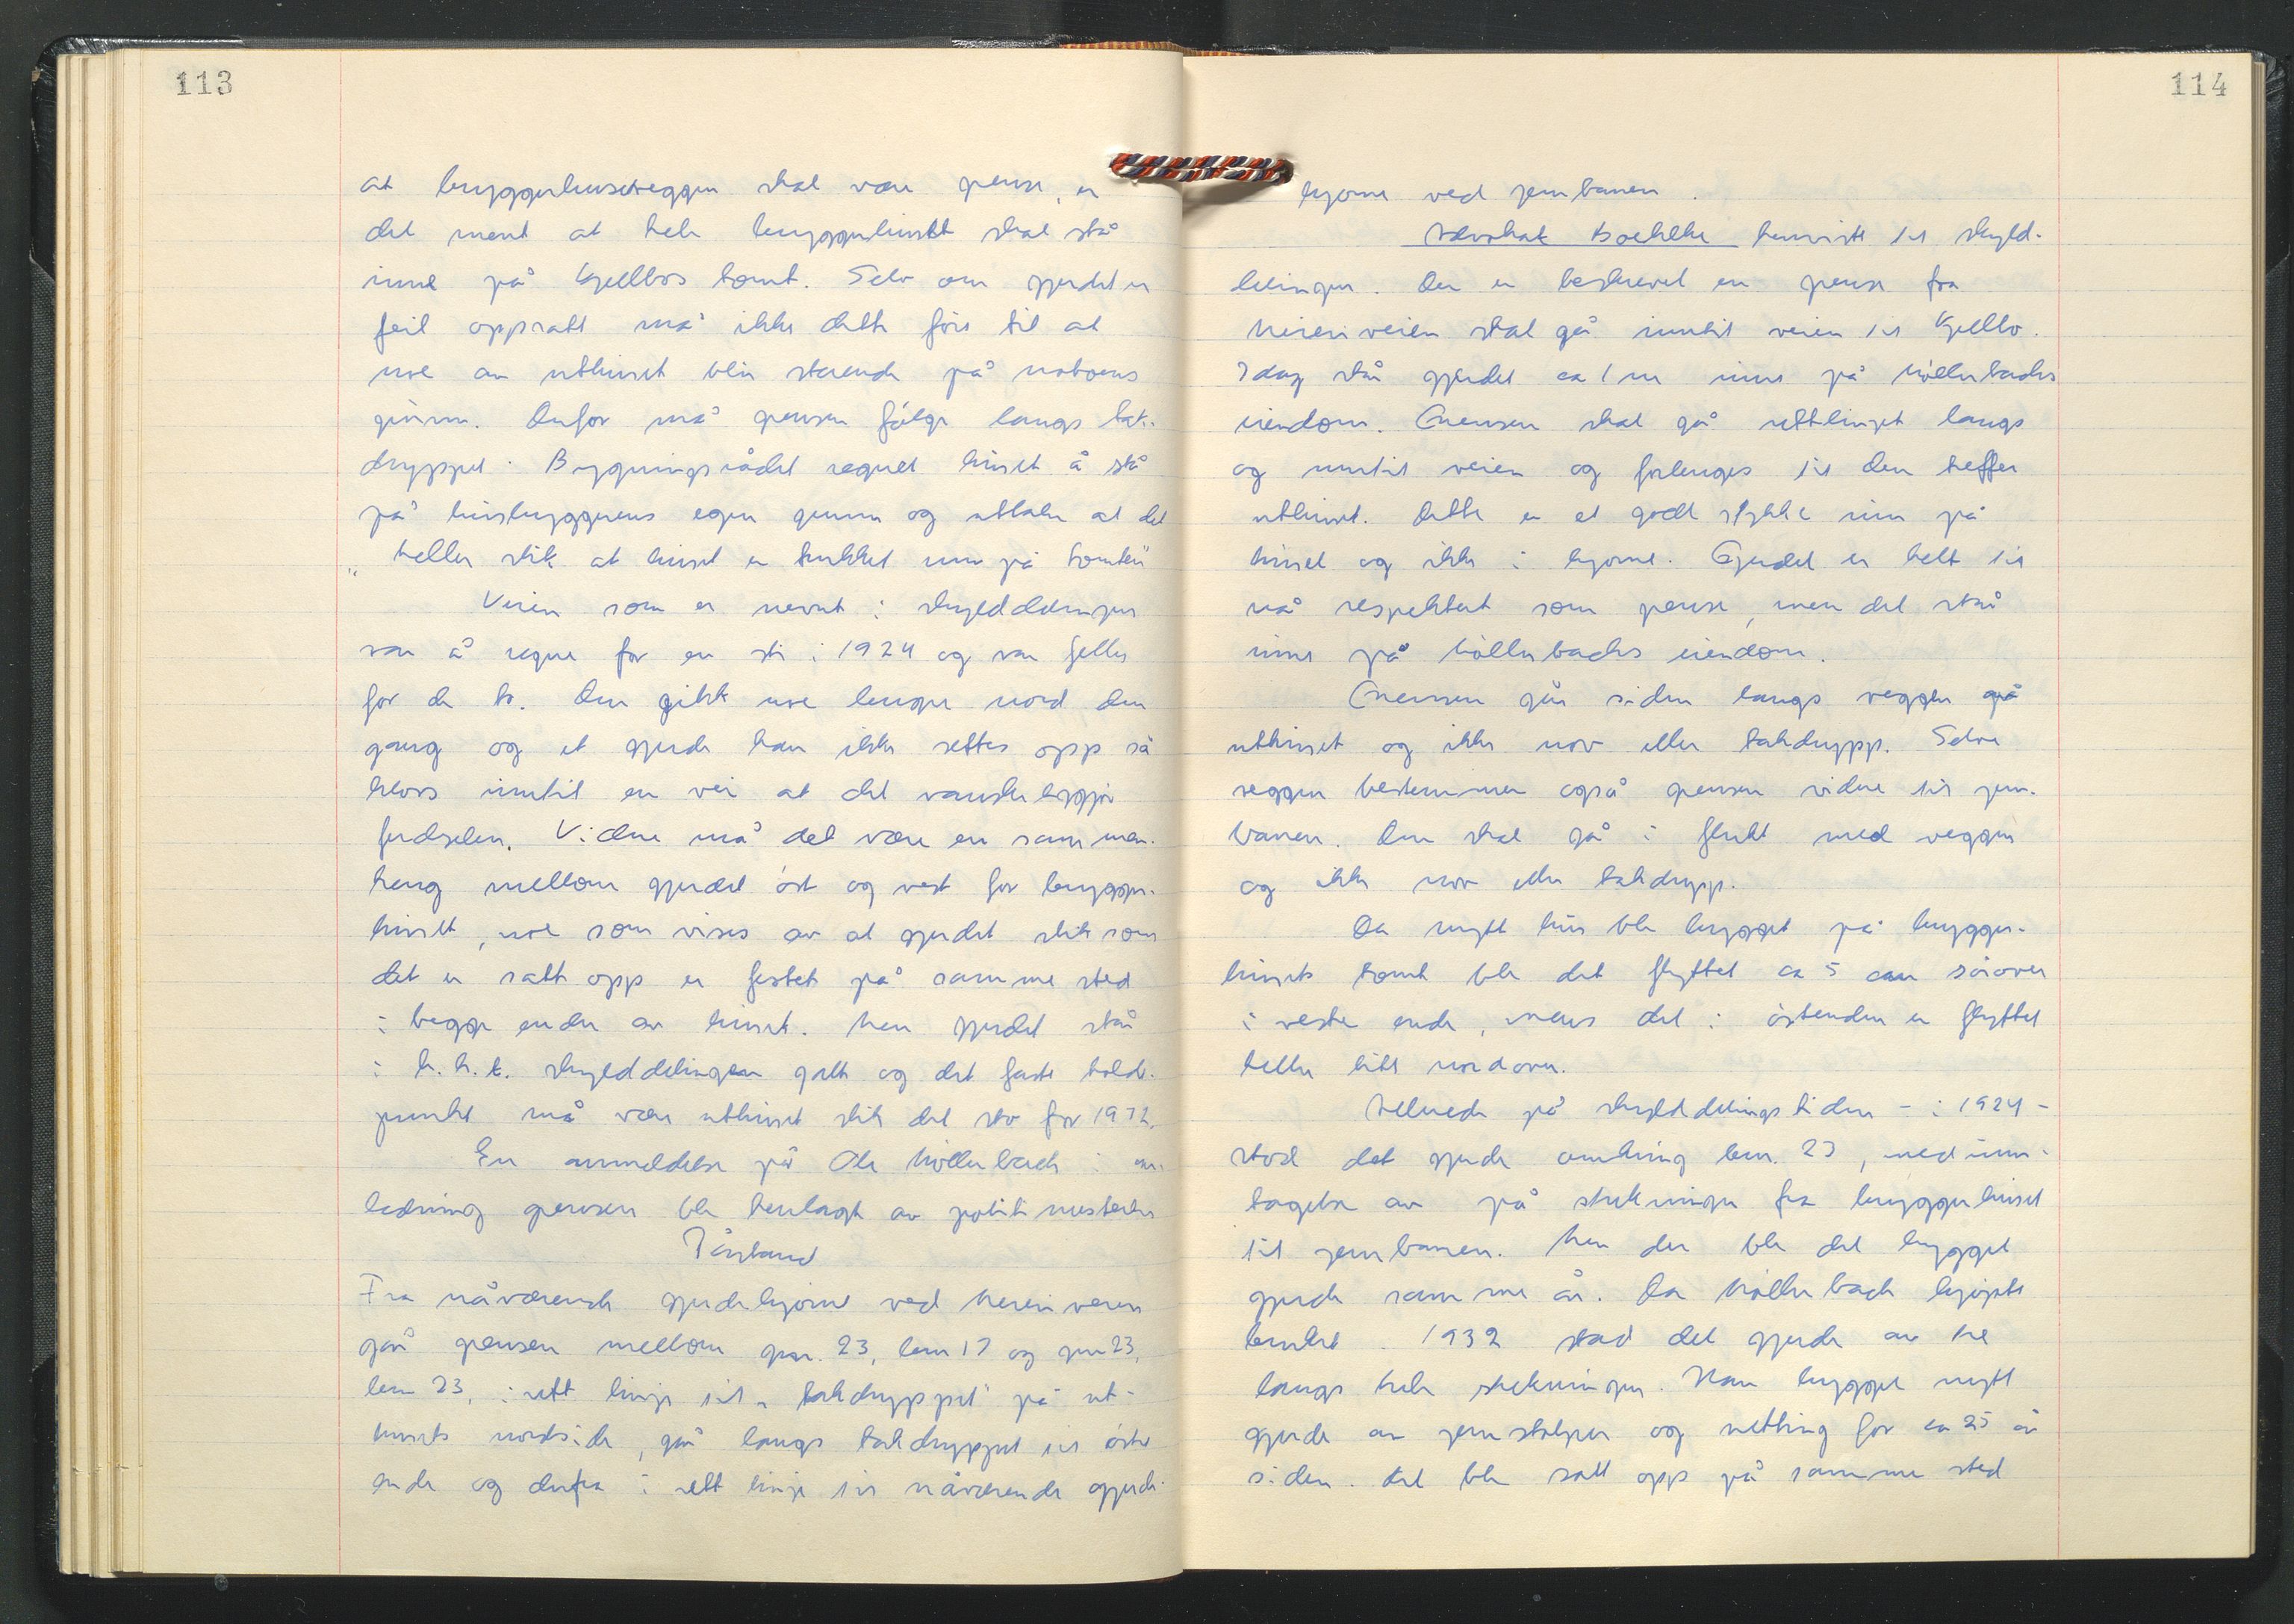 113
at bryggerhusveggen skal være grense, er
det ment at hele bryggerhuset skal stå
inne på Kjellbos tomt. Selv om gjerdet er
feil oppsatt må ikke dette føre til at
noe av uthuset blir stående på naboens
grunn. Derfor må grensen følge langs tak-
dryppet. Bygningsrådet regnet huset å stå
på husbyggerens egen grunn og uttaler at det
"heller slik at huset er trukket inn på tomten"
Veien som er nevnt i skylddelingen
var å regne for en sti i 1924 og var felles
for de to. Den gikk noe lenger nord den
gang og et gjerde kan ikke settes opp så
kloss inntil en vei at det vanskeliggjør
ferdselen. Videre må det være en sammen-
heng mellom gjerdet øst og vest for brygger-
huset, noe som vises av at gjerdet slik som
det er satt opp er festet på samme sted
i begge ender av huset. Men gjerdet står
i h.h.t. skylddelingen galt og det faste holde-
punktet må være uthuset slik det sto før 1932.
En anmeldelse på Ole Møllerbach i an-
ledning grensen ble henlagt av politimesteren
Påstand
Fra nåværende gjerdehjørne ved Meieriveien
går grensen mellom gnr. 23, bnr 17 og gnr 23,
bnr 23, i rett linje til "takdryppet" på ut-
husets nordside, går langs takdryppet til østre
ende og derfra i rett linje til nåværende gjerde-
114
hjørne ved jernbanen.
Advokat Boehlke henviste til skyld-
delingen. Der er beskrevet en grense fra
Meieriveien skal gå inntil veien til Kjellbo.
Idag står gjerdet ca 1 m inne på Møllerbachs
eiendom. Grensen skal gå rettlinjet langs
og inntil veien og forlenges til den treffer
uthuset. Dette er et godt stykke inn på
huset og ikke i hjørnet. Gjerdet er helt til
nå respektert som grense, men det står
inne på Møllerbachs eiendom.
Grensen går siden langs veggen på
uthuset og ikke nov eller takdrypp. Selve
veggen bestemmer også grensen videre til jern-
banen. Den skal gå i flukt med veggen
og ikke nov eller takdrypp.
Da nytt hus ble bygget på brygger-
husets tomt ble det flyttet ca 5 cm sørover
i vestre ende, mens det i østenden er flyttet
heller litt nordover.
Allerede på skylddelingstiden - i 1924 -
stod det gjerde omkring bnr. 23, med unn-
tagelse av på strekningen fra bryggerhuset
til jernbanen. Men der ble det bygget
gjerde samme år. Da Møllerbach kjøpte
bruket 1932 stod det gjerde av tre
langs hele strekningen. Han bygget nytt
gjerde av jernstolper og netting for ca 25 år
siden. Det ble satt opp på samme sted